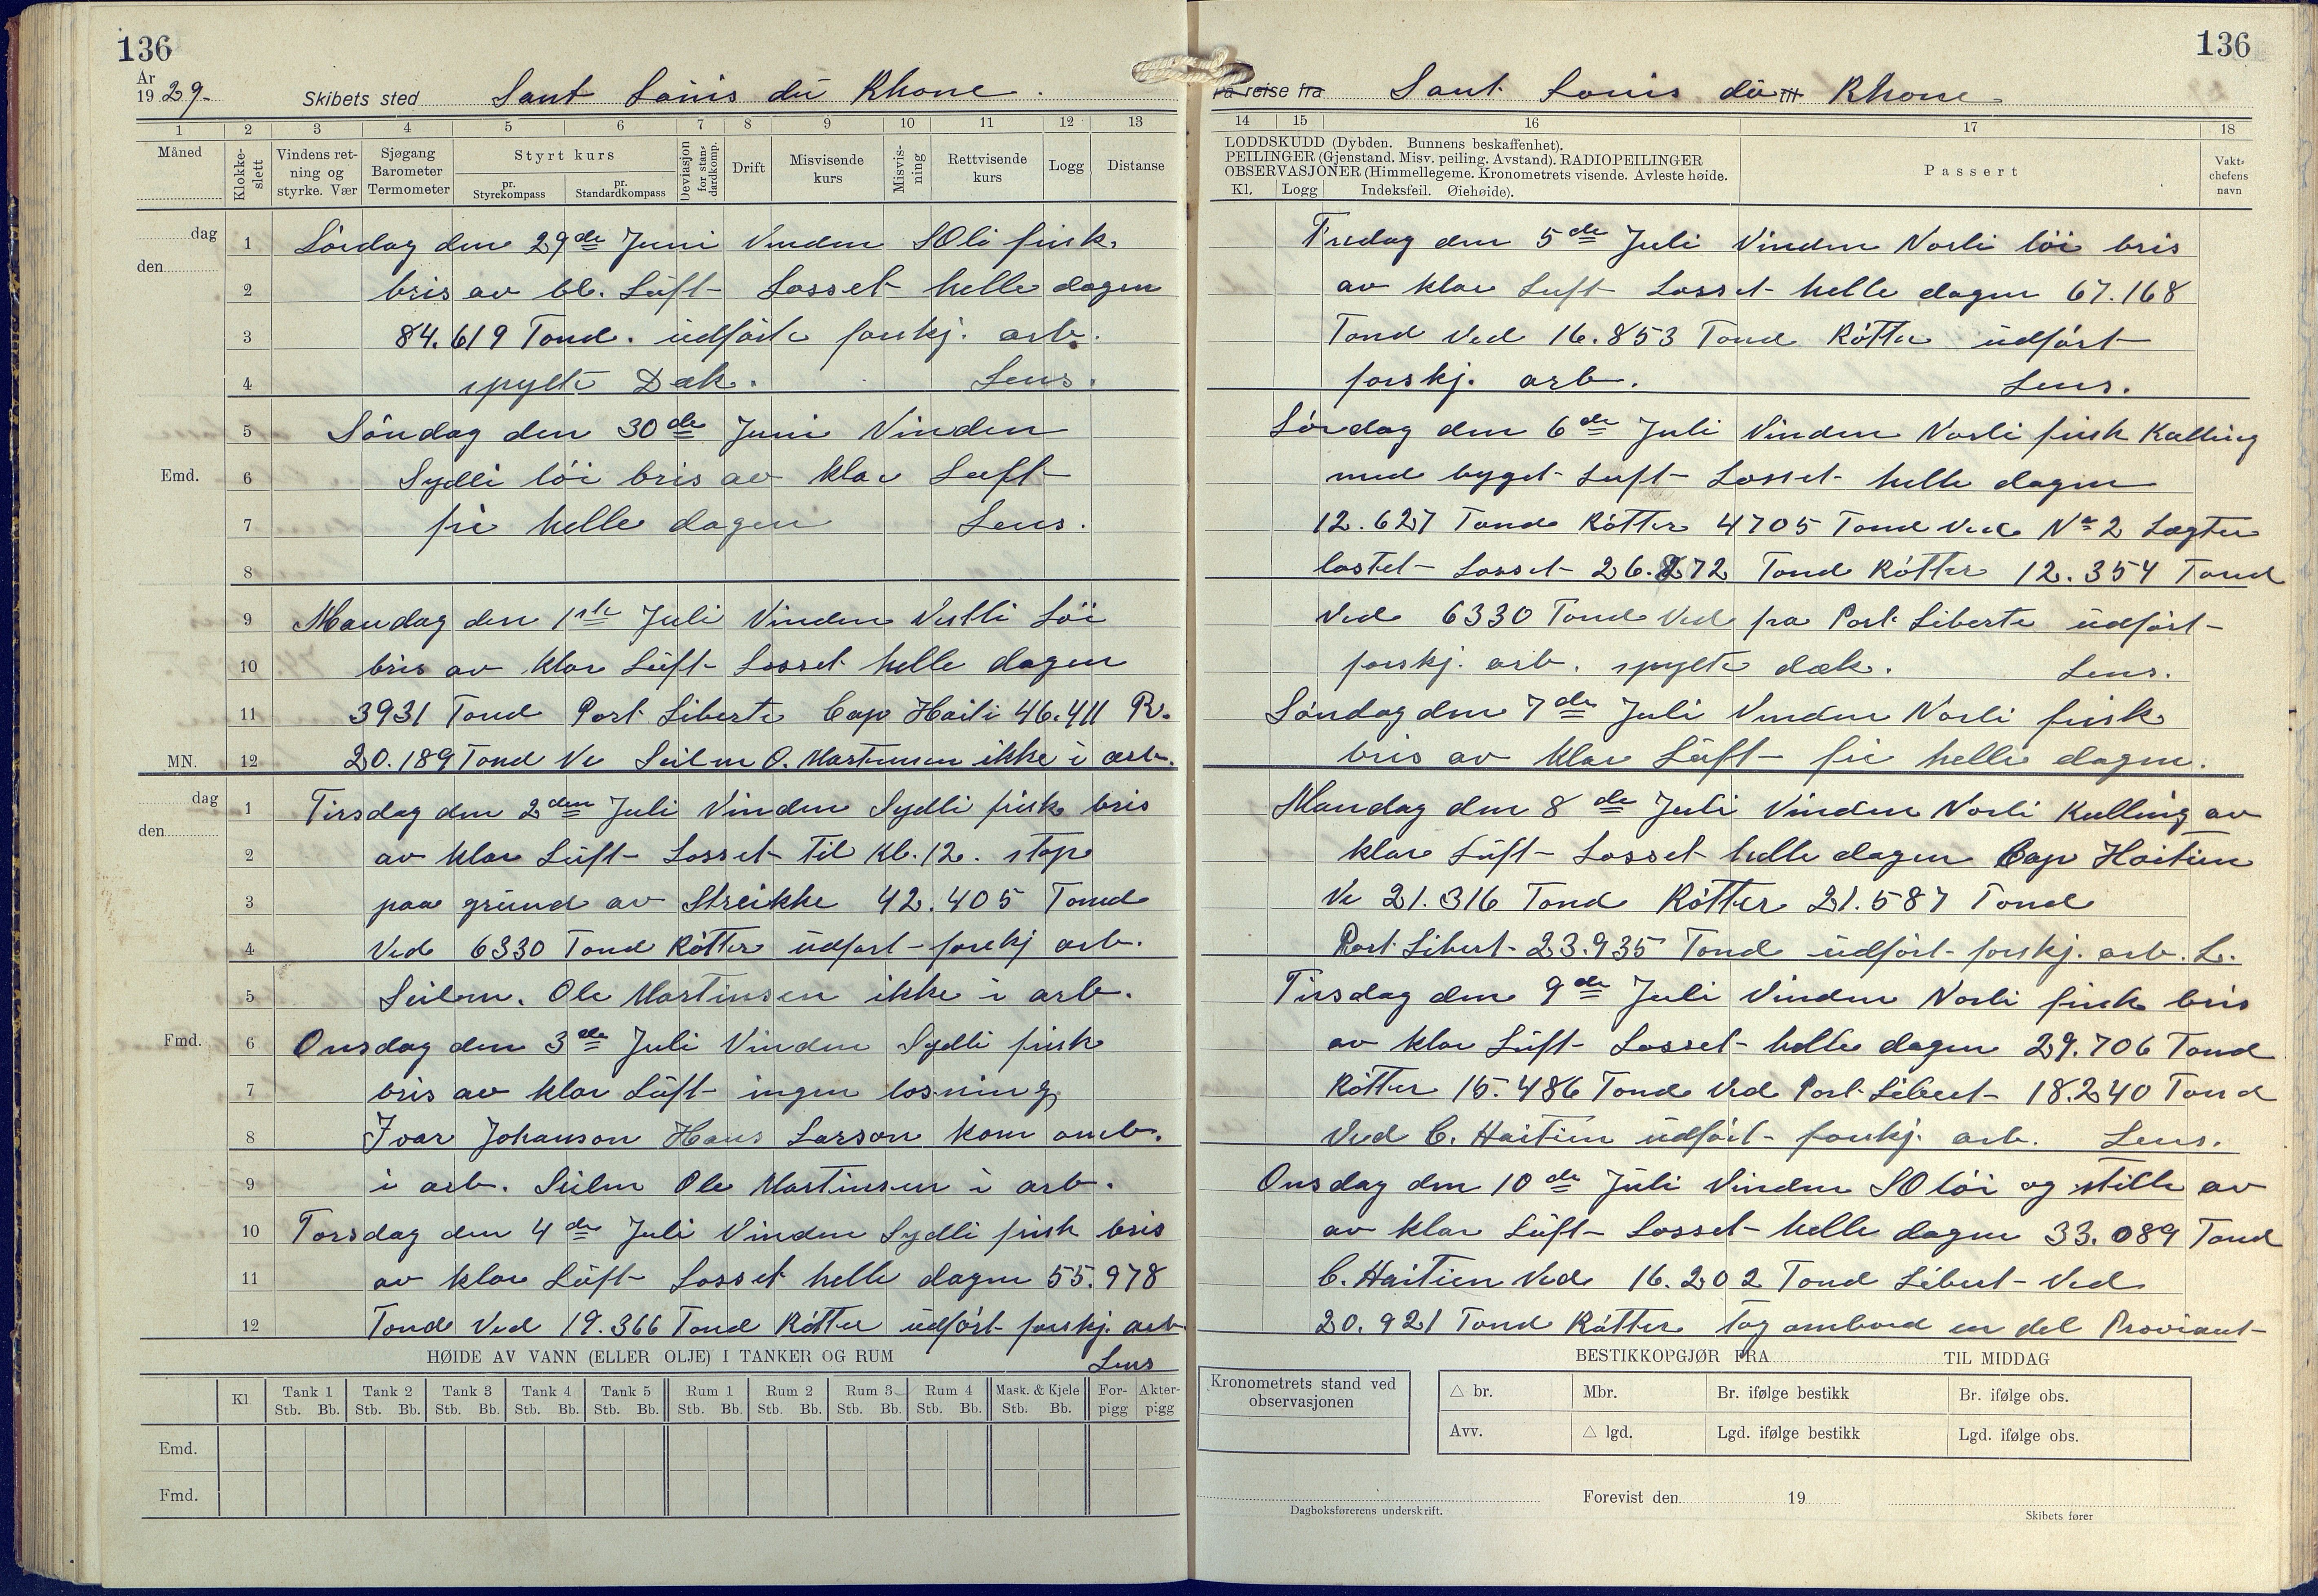 136
År
1929.
Skibets sted Sant Louis du Rhone.
1 2 3 4 5 6 7 8 9 10 11 12 13
Måned
Klokke-slett
Vindens retning og styrke. Vær
Sjøgang Barometer Termometer
Styrt kurs
pr. Styrekompass
pr. Standardkompass
Deviasjon for standardkomp.
Drift
Misvisende kurs
Misvisning
Rettvisende kurs
Logg
Distanse
dag
den
1 Lördag den 29de Juni Vinden SOli frisk
2 bris av bl. Luft Losset helle dagen
3 84.619 Tond. udfört forskj. arb.
4 spylte Dæk. Lens.
5 Söndag den 30de Juni Vinden
Emd. 6 Sydli löi bris av klar Luft
7 fri helle dagen Lens.
8
9 Mandag den 1ste Juli Vinden Vestli Löi
10 bris av klar Luft Losset helle dagen
11 3931 Tond Port Liberte Cap Haiti 46.411 R.
MN. 12 20.189 Tond Ve Seilm O. Martinsen ikke i arb.
dag
den
1 Tirsdag den 2den Juli Vinden Sydli frisk bris
2 av klar Luft Losset til Kl. 12. stop
3 paa grund av Streikke 42.405 Tond
4 Ved 6330 Tond Rötter udfört forskj arb.
5 Seilm. Ole Martinsen ikke i arb.
Fmd. 6 Onsdag den 3de Juli Vinden Sydli frisk
7 bris av klar Luft ingen losning
8 Ivar Johanson Hans Larson kom omb.
9 i arb. Seilm Ole Martinsen i arb.
10 Torsdag den 4de Juli Vinden Sydli frisk bris
11 av klar Luft Losset helle dagen 55.978
12 Tond Ved 19.366 Tond Rötter udfört forskj. arb
Lens
HØIDE AV VANN (ELLER OLJE) I TANKER OG RUM
Kl Tank 1 Tank 2 Tank 3 Tank 4 Tank 5 Rum 1 Rum 2 Rum 3 Rum 4 Mask. & Kjele For-pigg Akter-pigg
Stb. Bb. Stb. Bb. Stb. Bb. Stb. Bb. Stb. Bb. Stb. Bb. Stb. Bb. Stb. Bb. Stb. Bb. Stb. Bb.
Emd.
Fmd.
136
På reise fra Sant Louis du til Rhone
14 15 16 17 18
LODDSKUDD (Dybden. Bunnens beskaffenhet).
PEILINGER (Gjenstand. Misv. peiling. Avstand). RADIOPEILINGER
OBSERVASJONER (Himmellegeme. Kronometrets visende. Avleste høide.
Kl. Logg Indeksfeil. Øiehøide).
Passert
Vakt-chefens navn
Fredag den 5de Juli Vinden Norli löi bris
av klar Luft Losset helle dagen 67.168
Tond Ved 16.853 Tond Rötter udfört
forskj. arb. Lens.
Lördag den 6de Juli Vinden Norli frisk Kulling
med byget Luft Losset helle dagen
12.627 Tond Rötter 4705 Tond Ved No 2 Lægter
lastet Losset 26.872 Tond Rötter 12.354 Tond
Ved 6330 Tond Ved fra Port Liberte udfört
forskj. arb. spylte dæk. Lens.
Söndag den 7de Juli Vinden Norli frisk
bris av klar Luft fri helle dagen.
Mandag den 8de Juli Vinden Norli Kulling av
klar Luft Losset helle dagen Cap Haitien
Ve 21.316 Tond Rötter 21.587 Tond
Port Libert 23.935 Tond udfört forskj. arb. L.
Tirsdag den 9de Juli Vinden Norli frisk bris
av klar Luft Losset helle dagen 29.706 Tond
Rötter 15.486 Tond Ved Port Libert 18.240 Tond
Ved C. Haitien udfört forskj. arb. Lens.
Onsdag den 10de Juli Vinden SO löi og stille av
av klar Luft Losset helle dagen 33.089 Tond
C. Haitien Ved 16.202 Tond Libert Ved
20.921 Tond Rötter Tog ombord en del Proviant
BESTIKKOPGJØR FRA TIL MIDDAG
Kronometrets stand ved observasjonen
△ br. Mbr. Br. ifølge bestikk Br. ifølge obs.
Avv. △ lgd. Lgd. ifølge bestikk Lgd. ifølge obs.
Forevist den 19
Dagboksførerens underskrift.
Skibets fører